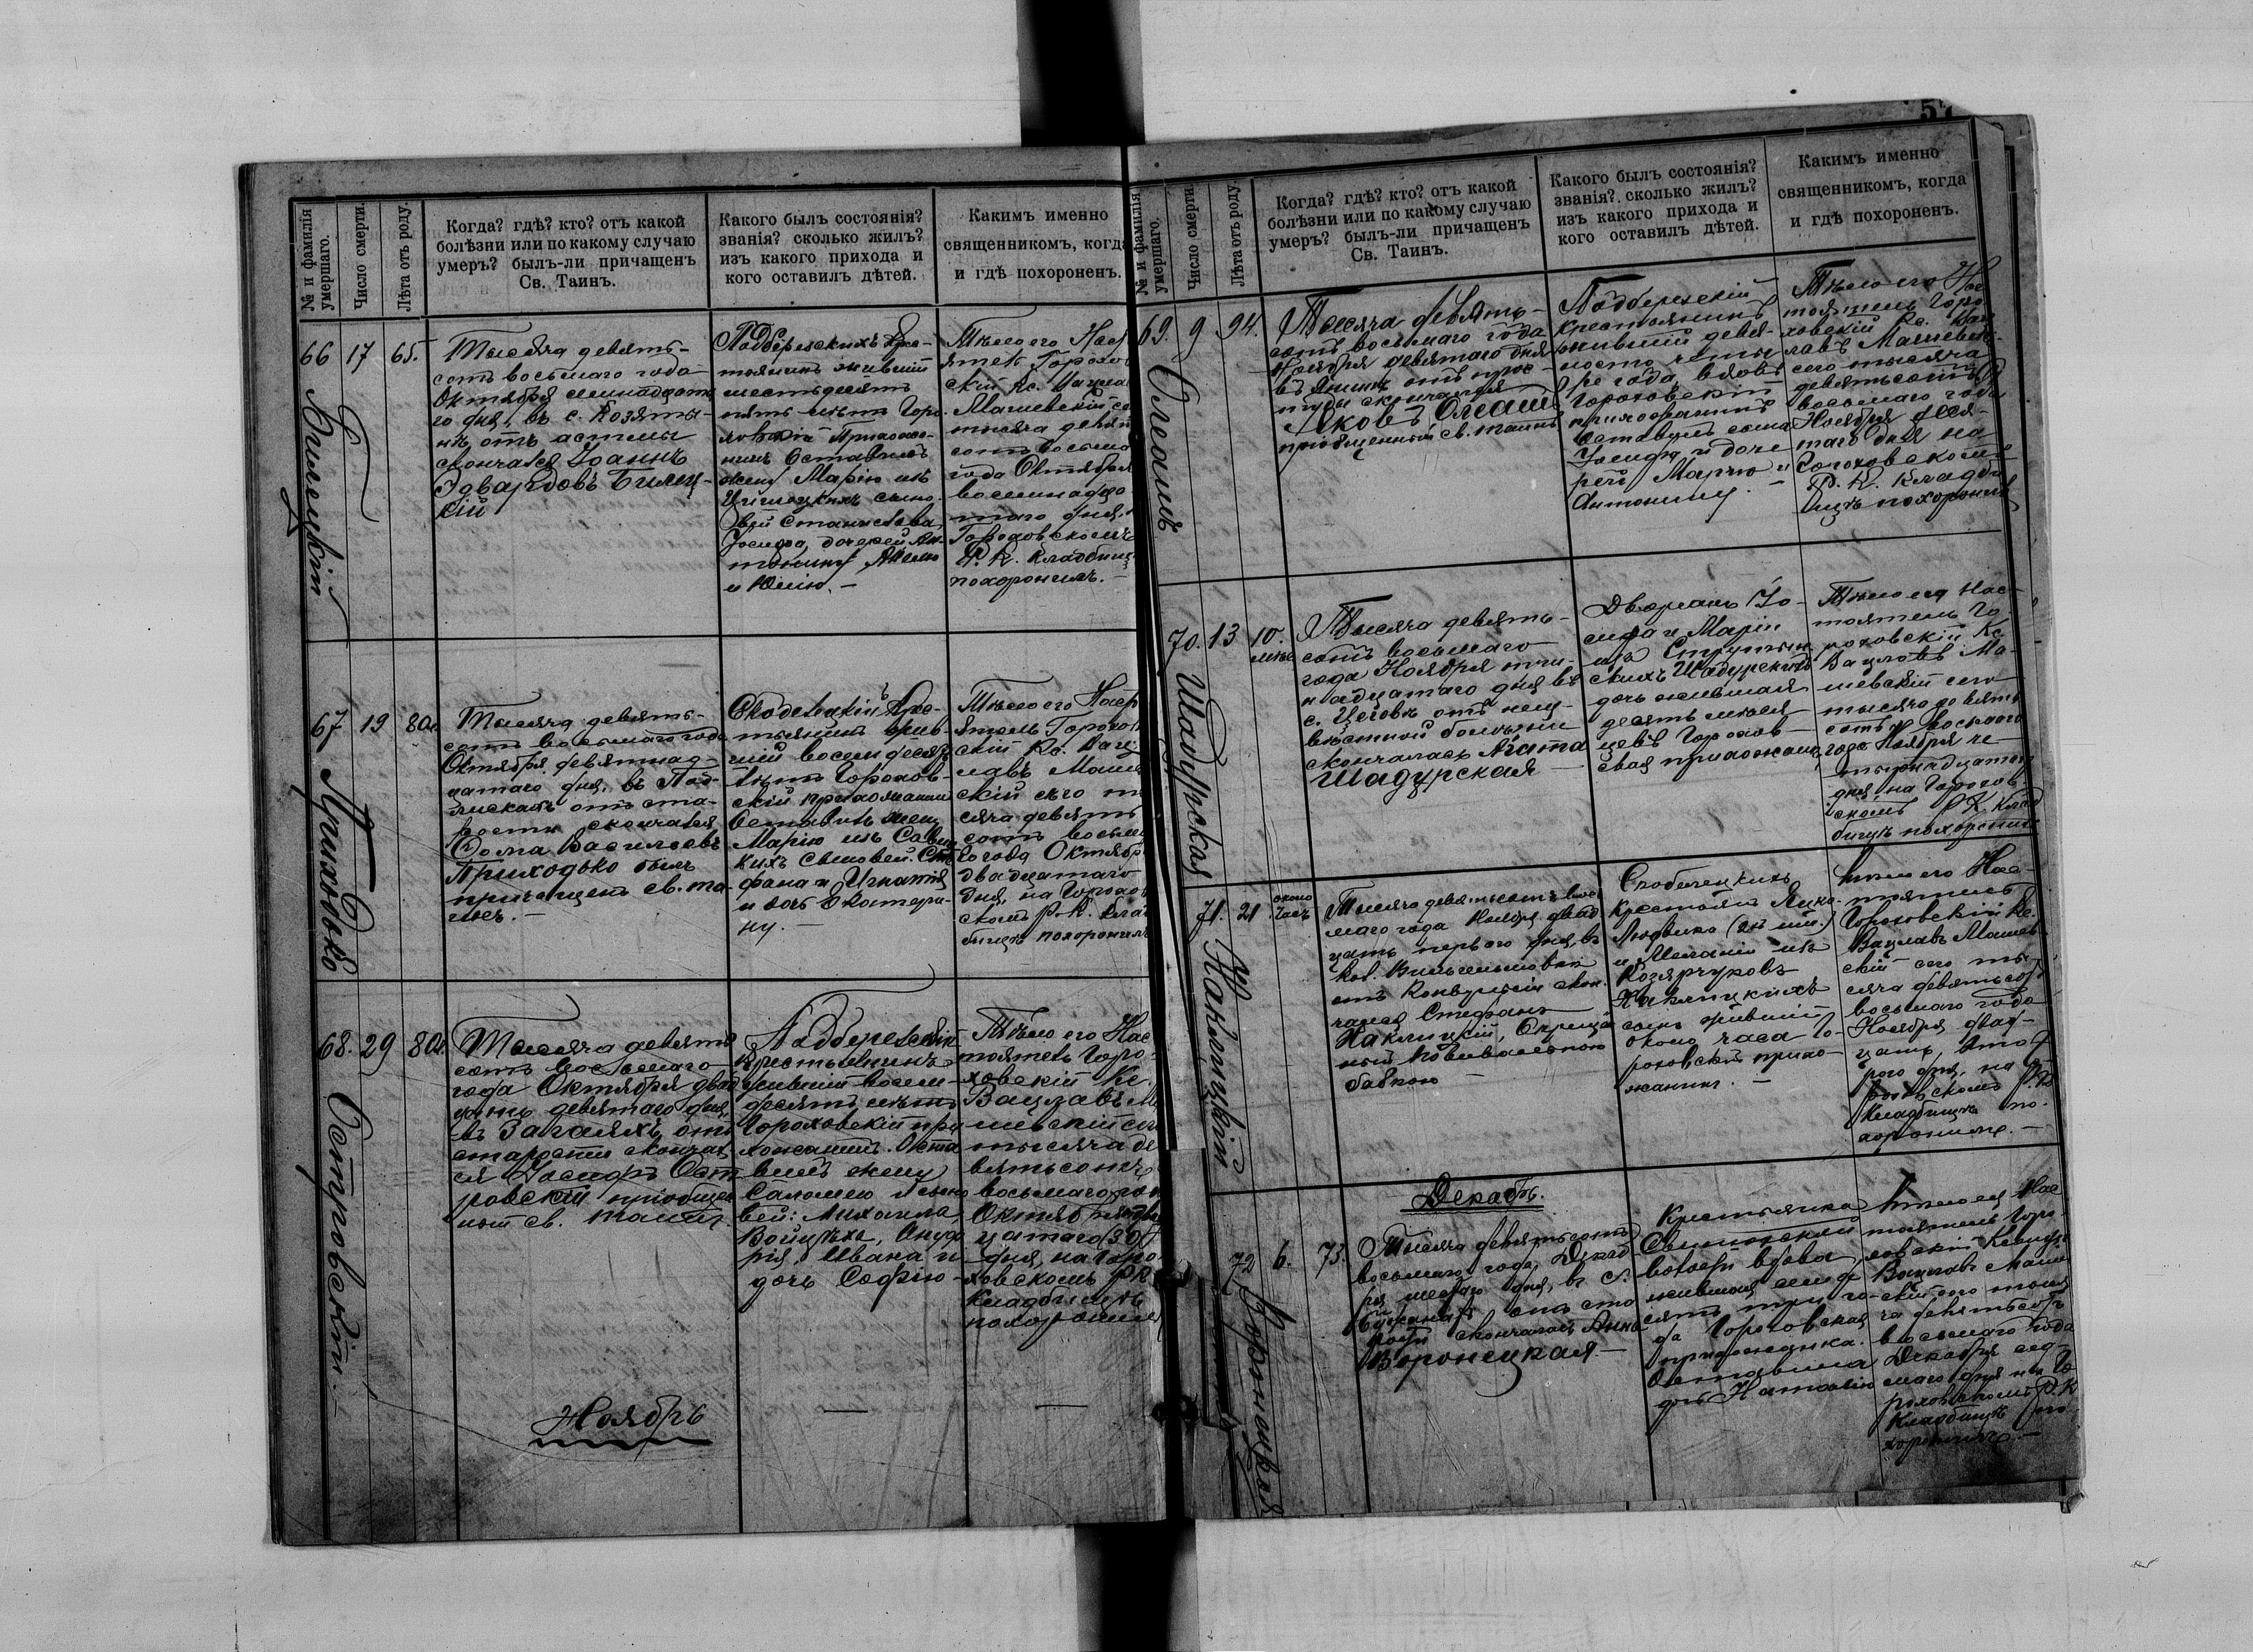 57
№ и фамилія умершаго.
Число смерти.
Лѣта отъ роду.
Когда? гдѣ? кто? отъ какой
болѣзни или по какому случаю
умеръ? былъ-ли причащенъ
Св. Таинъ.
Какого былъ состоянія?
званія? сколько жилъ?
изъ какого прихода и
кого оставилъ дѣтей.
Какимъ именно
священникомъ, когда
и гдѣ похороненъ.
66
Билецкій
17
65.
Тысяча девять-
сотъ восьмаго года
Октября семнадцата-
го дня, въ с. Козяты-
нѣ отъ астмы
скончался Іоаннъ
Эдвардовъ Билец-
кій
Подберезскихъ Кре-
тьянинъ жившій
шестьдесятъ
пять лѣтъ Горо-
ховскій Прихожа-
нинъ Оставилъ
жену Марію изъ
сыно-
вей Станислава
Іосифа, дочерей Ан-
тонину
и Юлію. —
Тѣло его Наст
ятель Горохов
скій Кс. Вацла
Машевскій се
тысяча девят
сотъ восьма
года Октября
восемнадца
таго дня,
Гороховскомъ
Р. К. Кладбищ
похоронилъ. —
67
Приходько
19
80
Тысяча девять-
сотъ восьмаго года
Октября девятнад-
цатаго дня, въ Под-
отъ ста-
рости скончался
Ѳома Васильевъ
Приходько былъ
причащенъ св. та-
инъ. —
Кре-
тьянинъ жив-
шій восемдесятъ
лѣтъ Горохов-
скій прихожанинъ
Оставилъ жену
Марію изъ
кихъ сыновей Сте
фана и Игнатія
и дочь Екатери-
ну. —
Тѣло его Наст
ятель Горохов
скій Кс. Ваце-
лавъ Маше
скій сего ты
сяча девять
сотъ восьма
го года Октябр
двадцатаго
дня, на Горохо
скомъ Р. К. Клад
бищѣ похоронилъ
68.
Островскій. —
29
80
Тысяча девять
сотъ восьмаго
года Октября двад
цать девятаго дня,
въ Загаяхъ отъ
старости сконча-
ся Іосифъ Ост
ровскій пріобщен
ный св. таинъ.
Подберезскій
Крестьянинъ
жившій восем-
десятъ лѣтъ
Гороховскій при
хожанинъ. Оста
вилъ жену
Саломею и сыно
вей: Михаила,
Войцѣха, Ануф
рія, Ивана и
дочь Софію —
Тѣло его Нас
тоятель Горо-
ховскій Кс.
Вацлавъ Ма
шевскій сего
тысяча де
вятьсотъ
восьмаго го
Октября
цатаго (30)
дня, на Горо
ховскомъ Р. К.
Кладбищѣ
похоронилъ
Ноябрь
—
—
№ и фамилія умершаго.
Число смерти.
Лѣта отъ роду.
Когда? гдѣ? кто? отъ какой
болѣзни или по какому случаю
умеръ? былъ-ли причащенъ
Св. Таинъ.
Какого былъ состоянія?
званія? сколько жилъ?
изъ какого прихода и
кого оставилъ дѣтей.
Какимъ именно
священникомъ, когда
и гдѣ похороненъ.
69.
Олеашъ
9
94.
Тысяча девять-
сотъ восьмаго года
Ноября девятаго дня
въ отъ прос-
туды скончался
Яковъ Олеашъ
пріобщенный св. таинъ
Подберезскій
крестьянинъ
жившій девя-
носто четы
ре года, вдовъ
Гороховскій
прихожанинъ
Оставилъ сына
Іосифа и доче
рей Марію и
Антонину. —
Тѣло его Нас
тоятель Горо
ховскій Кс. Вац
лавъ Машевскі
сего тысяча
девятьсотъ
восьмаго года
Ноября деся-
таго дня на
Гороховскомъ
Р. К. Кладби
щѣ похоронилъ
70.
Шадурская
13
10.
мѣс
Тысяча девять-
сотъ восьмаго
года Ноября три-
надцатаго дня въ
с. Цеговѣ отъ неиз-
вѣстной болѣзни
скончалась Агата
Шадурская —
Дворянъ Іо-
сифа и Маріи
изъ
скихъ Шадурскихъ
дочь жившая
десять мѣся
цевъ Горохов-
ская прихожан.
Тѣло ея Нас-
тоятель Го-
роховскій Кс
Вацлавъ Ма-
шевскій сего
тысяча девять
сотъ восьмаго
года Ноября че-
тырнадцатаго
дня на Горохов
скомъ Р. К. Клад
бищѣ похоронилъ
71.
Наклицкій
21
около
часъ
Тысяча девятьсотъ вось
маго года Ноября двад
цать перваго дня, въ
кол. Вильгельмовкѣ
отъ Конвульсіи скон-
чался Стефанъ
Наклицкій, Окрещен
ный повивальною
бабкою —
Крестьянъ
Людвика
и Меланіи изъ
Козярчуковъ
Наклицкихъ
сынъ жившій
около часа Го-
роховскій прихо-
жанинъ. —
тѣло его Нас-
тоятель
Гороховскій Кс.
Вацлавъ Машев-
скій сего ты-
сяча девятьсотъ
восьмаго года
Ноября двад-
цать вто-
рого дня, на Го
роховскомъ Р. К.
Кладбищѣ по-
хоронилъ. —
Декабрь.
72
Воронецкая
6.
73.
Тысяча девятьсотъ
восьмаго года, Декаб-
ря шестаго дня, въ с.
отъ ста
рости скончалась Анна
Воронецкая. —
Крестьянка
волости вдова,
жившая семьде
сятъ три го-
да Гороховская
прихожанка.
Оставила
дочь Наталію
тѣло ея Нас
тоятель Горо-
ховскій Ксендзъ
Вацлавъ Маше
скій сего тыся
ча девятьсотъ
восьмаго года
Декабря седь-
маго дня на Го
роховскомъ Р. К
Кладбищѣ по-
хоронилъ. —